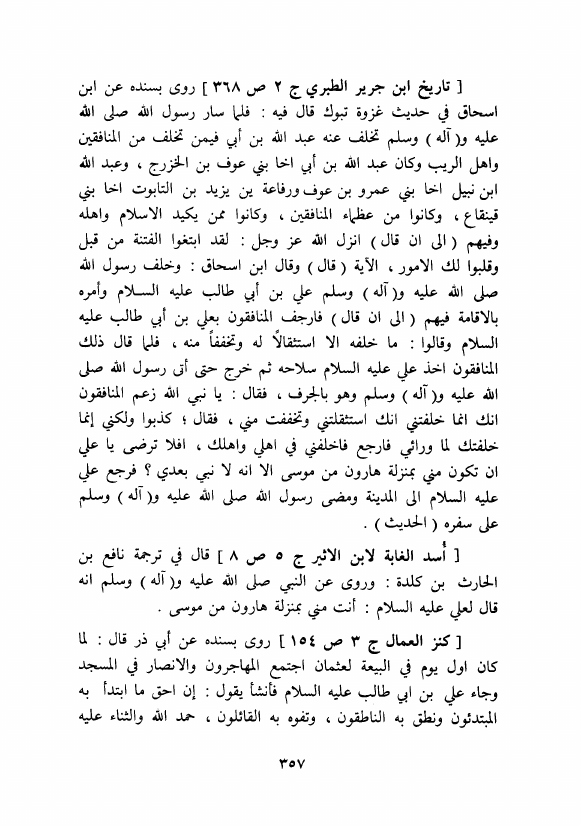 [ تاريخ ابن جرير الطبري ج ٢ ص ٣٦٨ ] روى بسنده عن ابن
اسحاق في حديث غزوة تبوك قال فيه : فلما سار رسول الله صلى الله
عليه و( آله ) وسلم تخلف عنه عبد الله بن أبي فيمن تخلف من المنافقين
واهل الريب وكان عبد الله بن أبي اخا بني عوف بن الخزرج ، وعبد الله
ابن نبيل اخا بني عمرو بن عوف ورفاعة ين يزيد بن التابوت اخا بني
قينقاع ، وكانوا من عظماء المنافقين ، وكانوا ممن يكيد الاسلام واهله
وفيهم ( الى ان قال ) انزل الله عز وجل : لقد ابتغوا الفتنة من قبل
وقلبوا لك الامور ، الآية ( قال ) وقال ابن اسحاق : وخلف رسول الله
صلى الله عليه و( آله ) وسلم علي بن أبي طالب عليه السلام وأمره
بالاقامة فيهم ( الى ان قال ) فارجف المنافقون بعلي بن أبي طالب عليه
السلام وقالوا : ما خلفه الا استثقالاً له وتخففاً منه ، فلما قال ذلك
المنافقون اخذ علي عليه السلام سلاحه ثم خرج حتى أتى رسول الله صلى
الله عليه و( آله ) وسلم وهو بالجرف ، فقال : يا نبي الله زعم المنافقون
انك انما خلفتني انك استثقلتني وتخففت مني ، فقال ؛ كذبوا ولكني إنما
خلفتك لما ورائي فارجع فاخلفني في اهلي واهلك ، افلا ترضى يا علي
ان تكون مني بمنزلة هارون من موسى الا انه لا نبي بعدي ؟ فرجع علي
عليه السلام الى المدينة ومضى رسول الله صلى الله عليه و( آله ) وسلم
على سفره ( الحديث ) .
[ أُسد الغابة لابن الاثير ج ٥ ص ٨ ] قال في ترجمة نافع بن
الحارث بن كلدة : وروى عن النبي صلى الله عليه و( آله ) وسلم انه
قال لعلي عليه السلام : أنت مني بمنزلة هارون من موسى .
[ كنز العمال ج ٣ ص ١٥٤ ] روى بسنده عن أبي ذر قال : لما
كان اول يوم في البيعة لعثمان اجتمع المهاجرون والانصار في المسجد
وجاء علي بن ابي طالب عليه السلام فأنشأ يقول : إن احق ما ابتدأ به
المبتدئون ونطق به الناطقون ، وتفوه به القائلون ، حمد الله والثناء عليه
٣٥٧